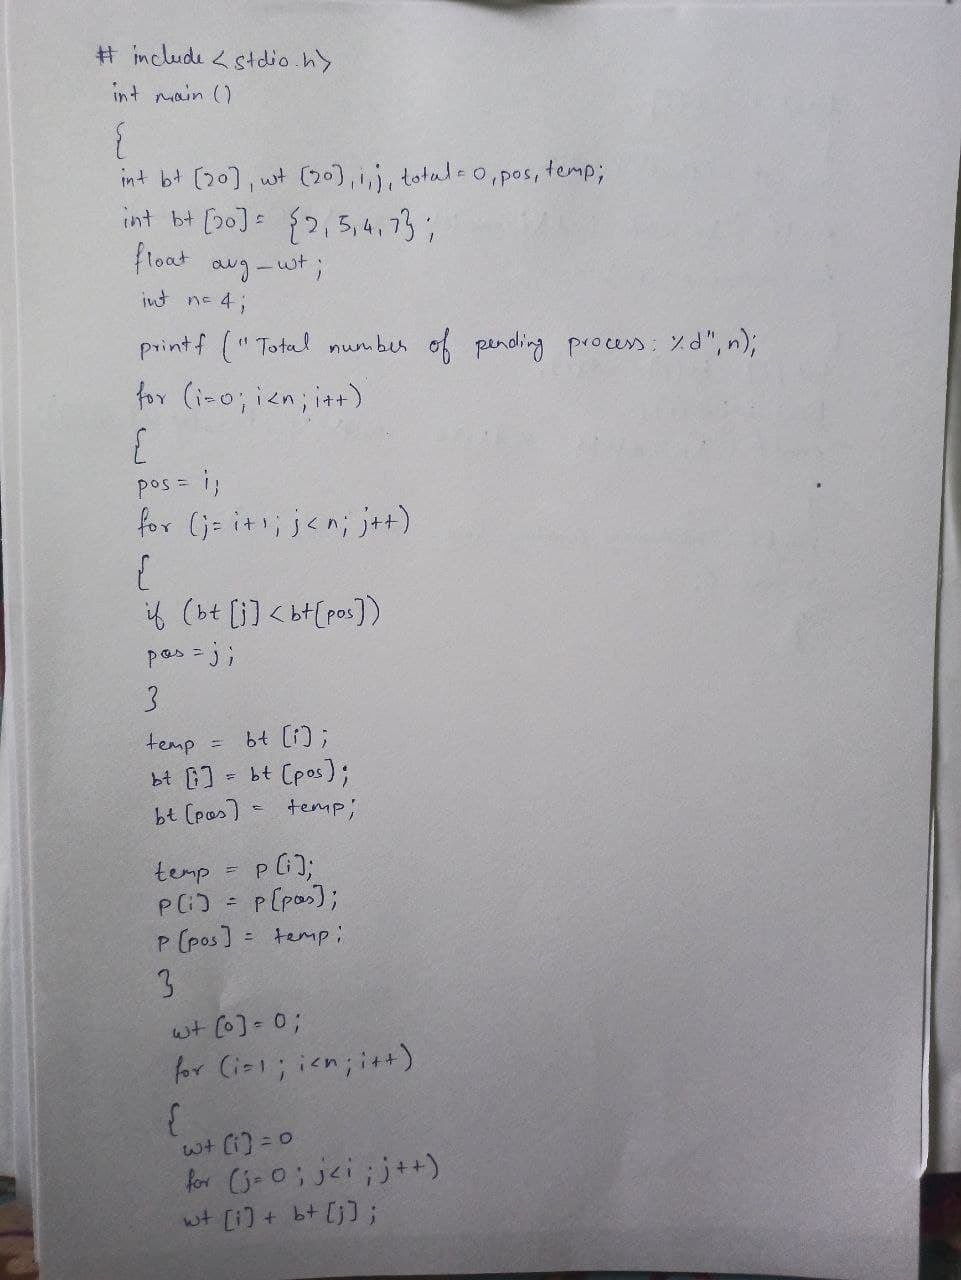 # include <stdio.h>
int main ()
{
int bt [20], wt [20], i, j, total = 0, pos, temp;
int bt [20] = {2, 5, 4, 7};
float avg_wt;
int n = 4;
printf ("Total number of pending process: %d", n);
for (i=0; i<n; i++)
{
pos = i;
for (j= i+1; j<n; j++)
{
if (bt [j] < bt[pos])
pos = j;
}
temp = bt [i];
bt [i] = bt [pos];
bt [pos] = temp;
temp = p [i];
p[i] = p[pos];
p [pos] = temp;
}
wt [0] = 0;
for (i=1; i<n; i++)
{
wt [i] = 0
for (j=0; j<i; j++)
wt [i] + bt [j];